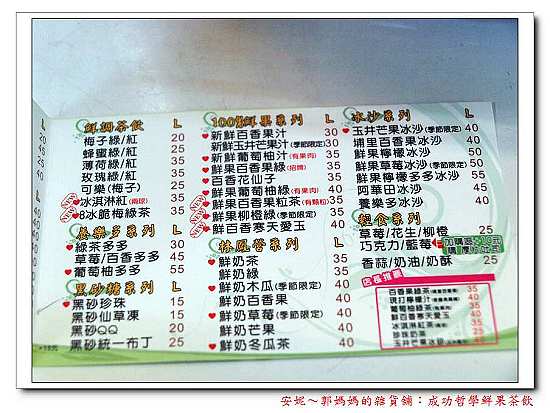 鮮調茶飲 L
梅子綠/紅 20
蜂蜜綠/紅 30
薄荷綠/紅 35
玫瑰綠/紅 35
可樂(梅子) 25
冰淇淋紅(兩球) 35
8冰脆梅綠茶 35
養樂多系列 L
綠茶多多 30
草莓/百香多多 45
葡萄柚多多 55
黑砂糖系列 L
黑砂珍珠 15
黑砂仙草凍 15
黑砂QQ 20
黑砂統一布丁 25
100%鮮果系列 L
新鮮百香果汁 30
新鮮玉井芒果汁(季節限定) 30
新鮮葡萄柚汁(有果肉) 35
新鮮百香果綠(招牌) 35
百香花仙子 35
新鮮葡萄柚綠(有果肉) 40
新鮮百香果粒紅茶(有顆粒) 35
新鮮柳橙綠(季節限定) 50
鮮百香寒天愛玉 40
林鳳營系列 L
鮮奶茶 35
鮮奶綠 35
鮮奶木瓜(季節限定) 40
鮮奶百香果 40
鮮奶草莓(季節限定) 40
鮮奶芒果 40
鮮奶冬瓜茶 35
冰沙系列 L
玉井芒果冰沙(季節限定) 40
埔里百香果冰沙 40
鮮果檸檬冰沙 40
鮮果草莓冰沙(季節限定) 50
鮮果檸檬多多冰沙 50
阿華田冰沙 45
養樂多冰沙 40
輕食系列
草莓/花生/柳橙 20
巧克力/藍莓 20
香蒜/奶油/奶酥 25
店長推薦
百香果綠茶 35
現打檸檬汁 35
葡萄柚綠茶 40
鮮百香寒天愛玉 40
冰淇淋紅茶 35
珍珠奶茶 25
玉井芒果冰沙 40
安妮～郭媽媽的雜貨鋪：成功哲學鮮果茶飲